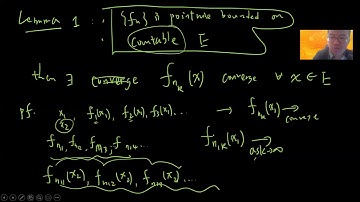 Lemma 1 : {fn} is pointwise bounded on
countable E
then ∃ converge f_{n_k}(x) converge ∀ x ∈ E
pf. x₁ f₁(x₁), f₂(x₁), f₃(x₁), ... → f_{n_k}(x₁) → converge
x₂
f_{n1}, f_{n2}, f_{n3}, f_{n4} ... f_{n_{1k}}(x₂) → as k→∞
f_{n11}(x₂), f_{n12}(x₂), f_{n13}(x₂) ...